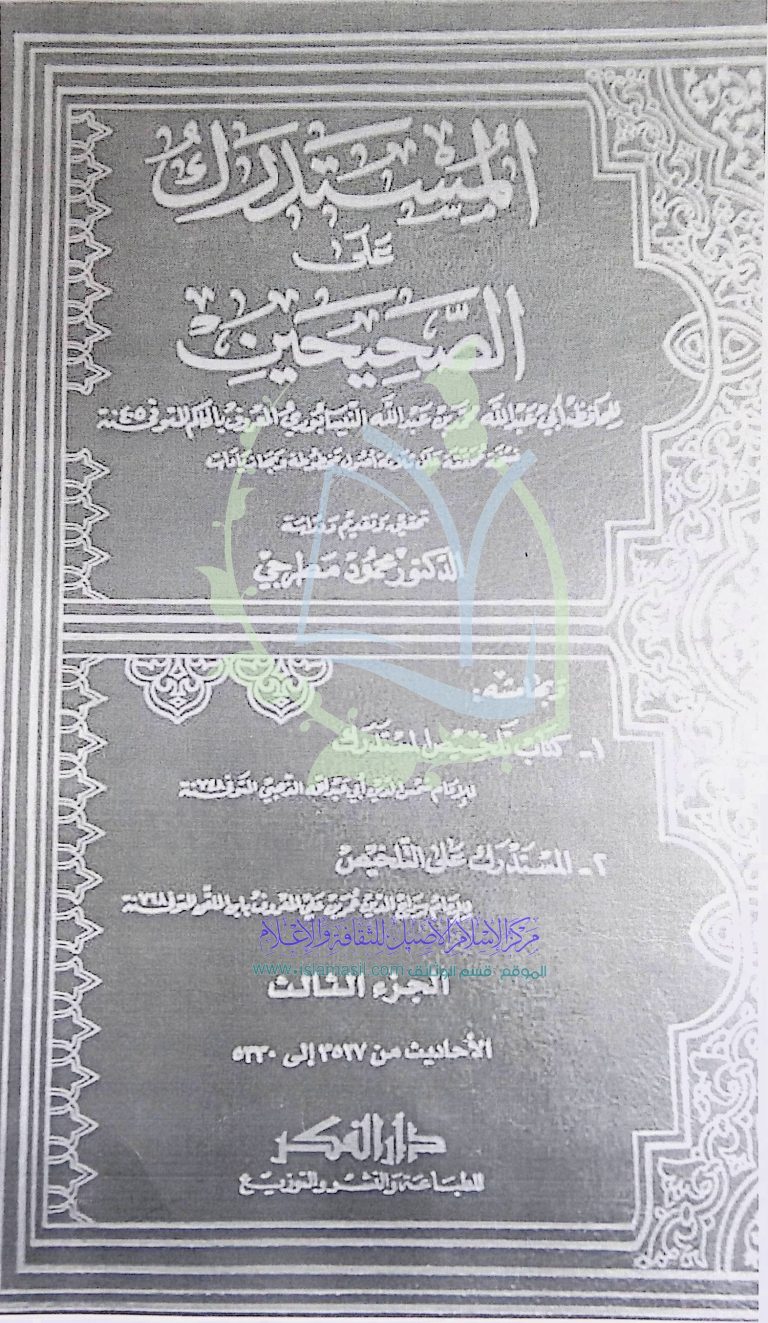 المُسْتَدرَك
عَلَى
الصَّحِيحَين
للحافظ أبي عبدالله محمد بن عبدالله النيسابوري المعروف بالحاكم المتوفى سنة ٤٠٥
تحقيق وتقديم ودراسة
الدكتور محمود مطرجي
وبهامشه:
١- كتاب تلخيص المستدرك
للإمام شمس الدين أبي عبدالله الذهبي المتوفى سنة ٧٤٨
٢- المستدرك على التلخيص
مركز الإسلام الأصيل للثقافة والإعلام
الموقع: قسم الوثائق www.islamasil.com
الجزء الثالث
الأحاديث من ٣٥٢٧ إلى ٥٣٣٠
دار الفكر
للطباعة والنشر والتوزيع